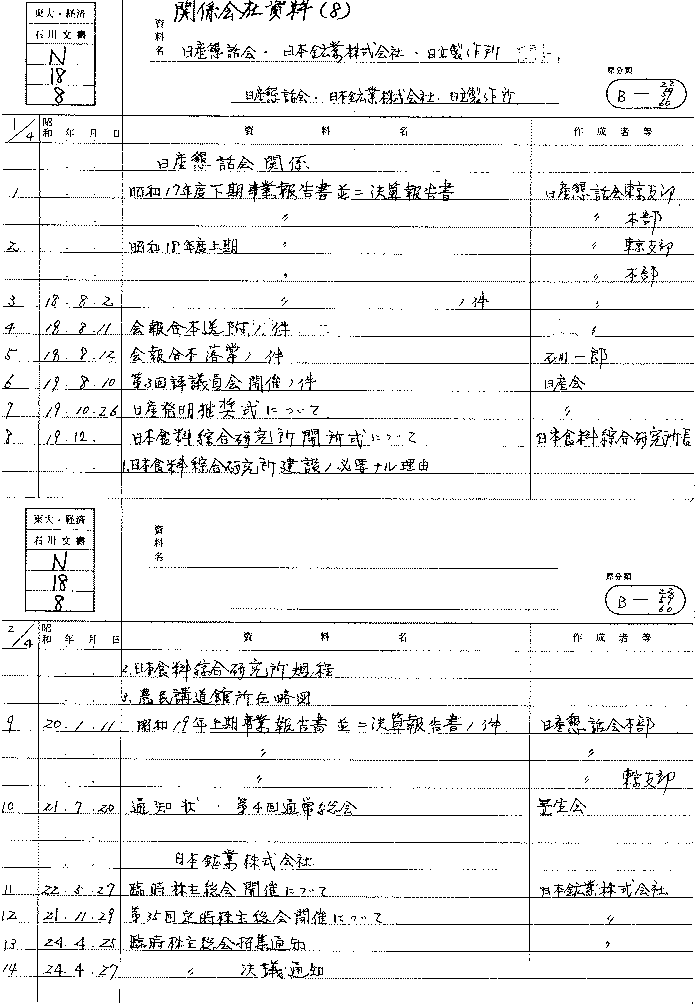 東大・経済
石川文書
N
18
8
関係会社資料(8)
資料名
日産懇話会・日本鉱業株式会社・日立製作所
日産懇話会・日本鉱業株式会社・日立製作所
原分類
B — 59 60
1/4 昭和 年 月 日 資料名 作成者等
日産懇話会関係
1 昭和17年度下期事業報告書並ニ決算報告書 日産懇話会東京支部
〃 〃 本部
2 昭和18年度上期 〃 〃 東京支部
〃 〃 本部
3 18.8.2 〃 ノ件 〃
4 18.8.11 会報合本送附ノ件 〃
5 18.8.12 会報合本落掌ノ件 石川一郎
6 19.8.10 第3回評議員会開催ノ件 日産会
7 19.10.26 日産発明推奨式について 〃
8 19.12. 日本食料綜合研究所開所式について 日本食料綜合研究所長
1.日本食料綜合研究所建設ノ必要ナル理由
東大・経済
石川文書
N
18
8
資料名
原分類
B — 59 60
2/4 昭和 年 月 日 資料名 作成者等
2.日本食料綜合研究所規程
3.農民講道館所在略図
9 20.1.11 昭和19年上期事業報告書並ニ決算報告書ノ件 日産懇話会本部
〃 〃
〃 〃 東京支部
10 21.7.20 通知状・第4回通常総会
日本鉱業株式会社
11 22.5.27 臨時株主総会開催について 日本鉱業株式会社
12 21.11.29 第35回定時株主総会開催について 〃
13 24.4.25 臨時株主総会招集通知 〃
14 24.4.27 〃 決議通知